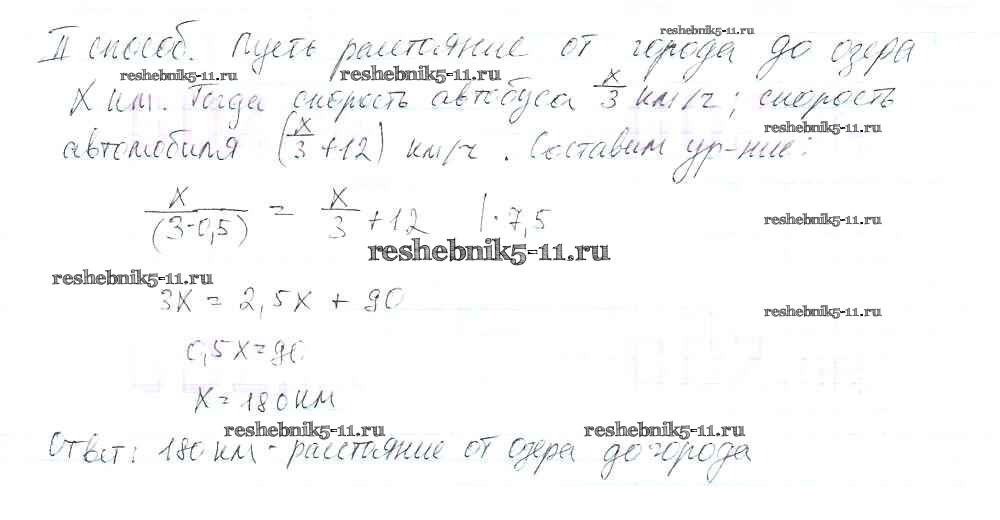 II способ. Пусть расстояние от города до озера
x км. Тогда скорость автобуса x/3 км/ч; скорость
автомобиля (x/3 + 12) км/ч. Составим ур-ние:
x/(3-0,5) = x/3 + 12 | · 7,5
3x = 2,5x + 90
0,5x = 90
x = 180 км
Ответ: 180 км - расстояние от озера до города
reshebnik5-11.ru
reshebnik5-11.ru
reshebnik5-11.ru
reshebnik5-11.ru
reshebnik5-11.ru
reshebnik5-11.ru
reshebnik5-11.ru
reshebnik5-11.ru
reshebnik5-11.ru
reshebnik5-11.ru